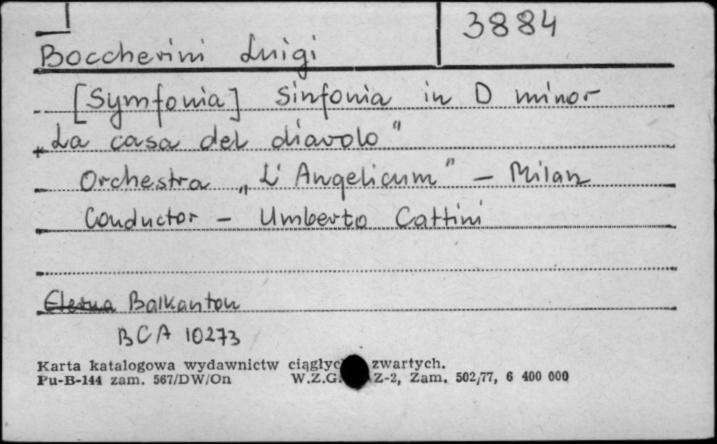 3884
Boccherini Luigi
[Symfonia] Sinfonia in D minor
„La casa del diavolo"
Orchestra „L'Angelicum" – Milan
Conductor – Umberto Cattini
Eterna Balkanton
BCA 10273
Karta katalogowa wydawnictw ciągłyc zwartych.
Pu-B-144 zam. 567/DW/On W.Z.G. Z-2, Zam. 502/77, 6 400 000